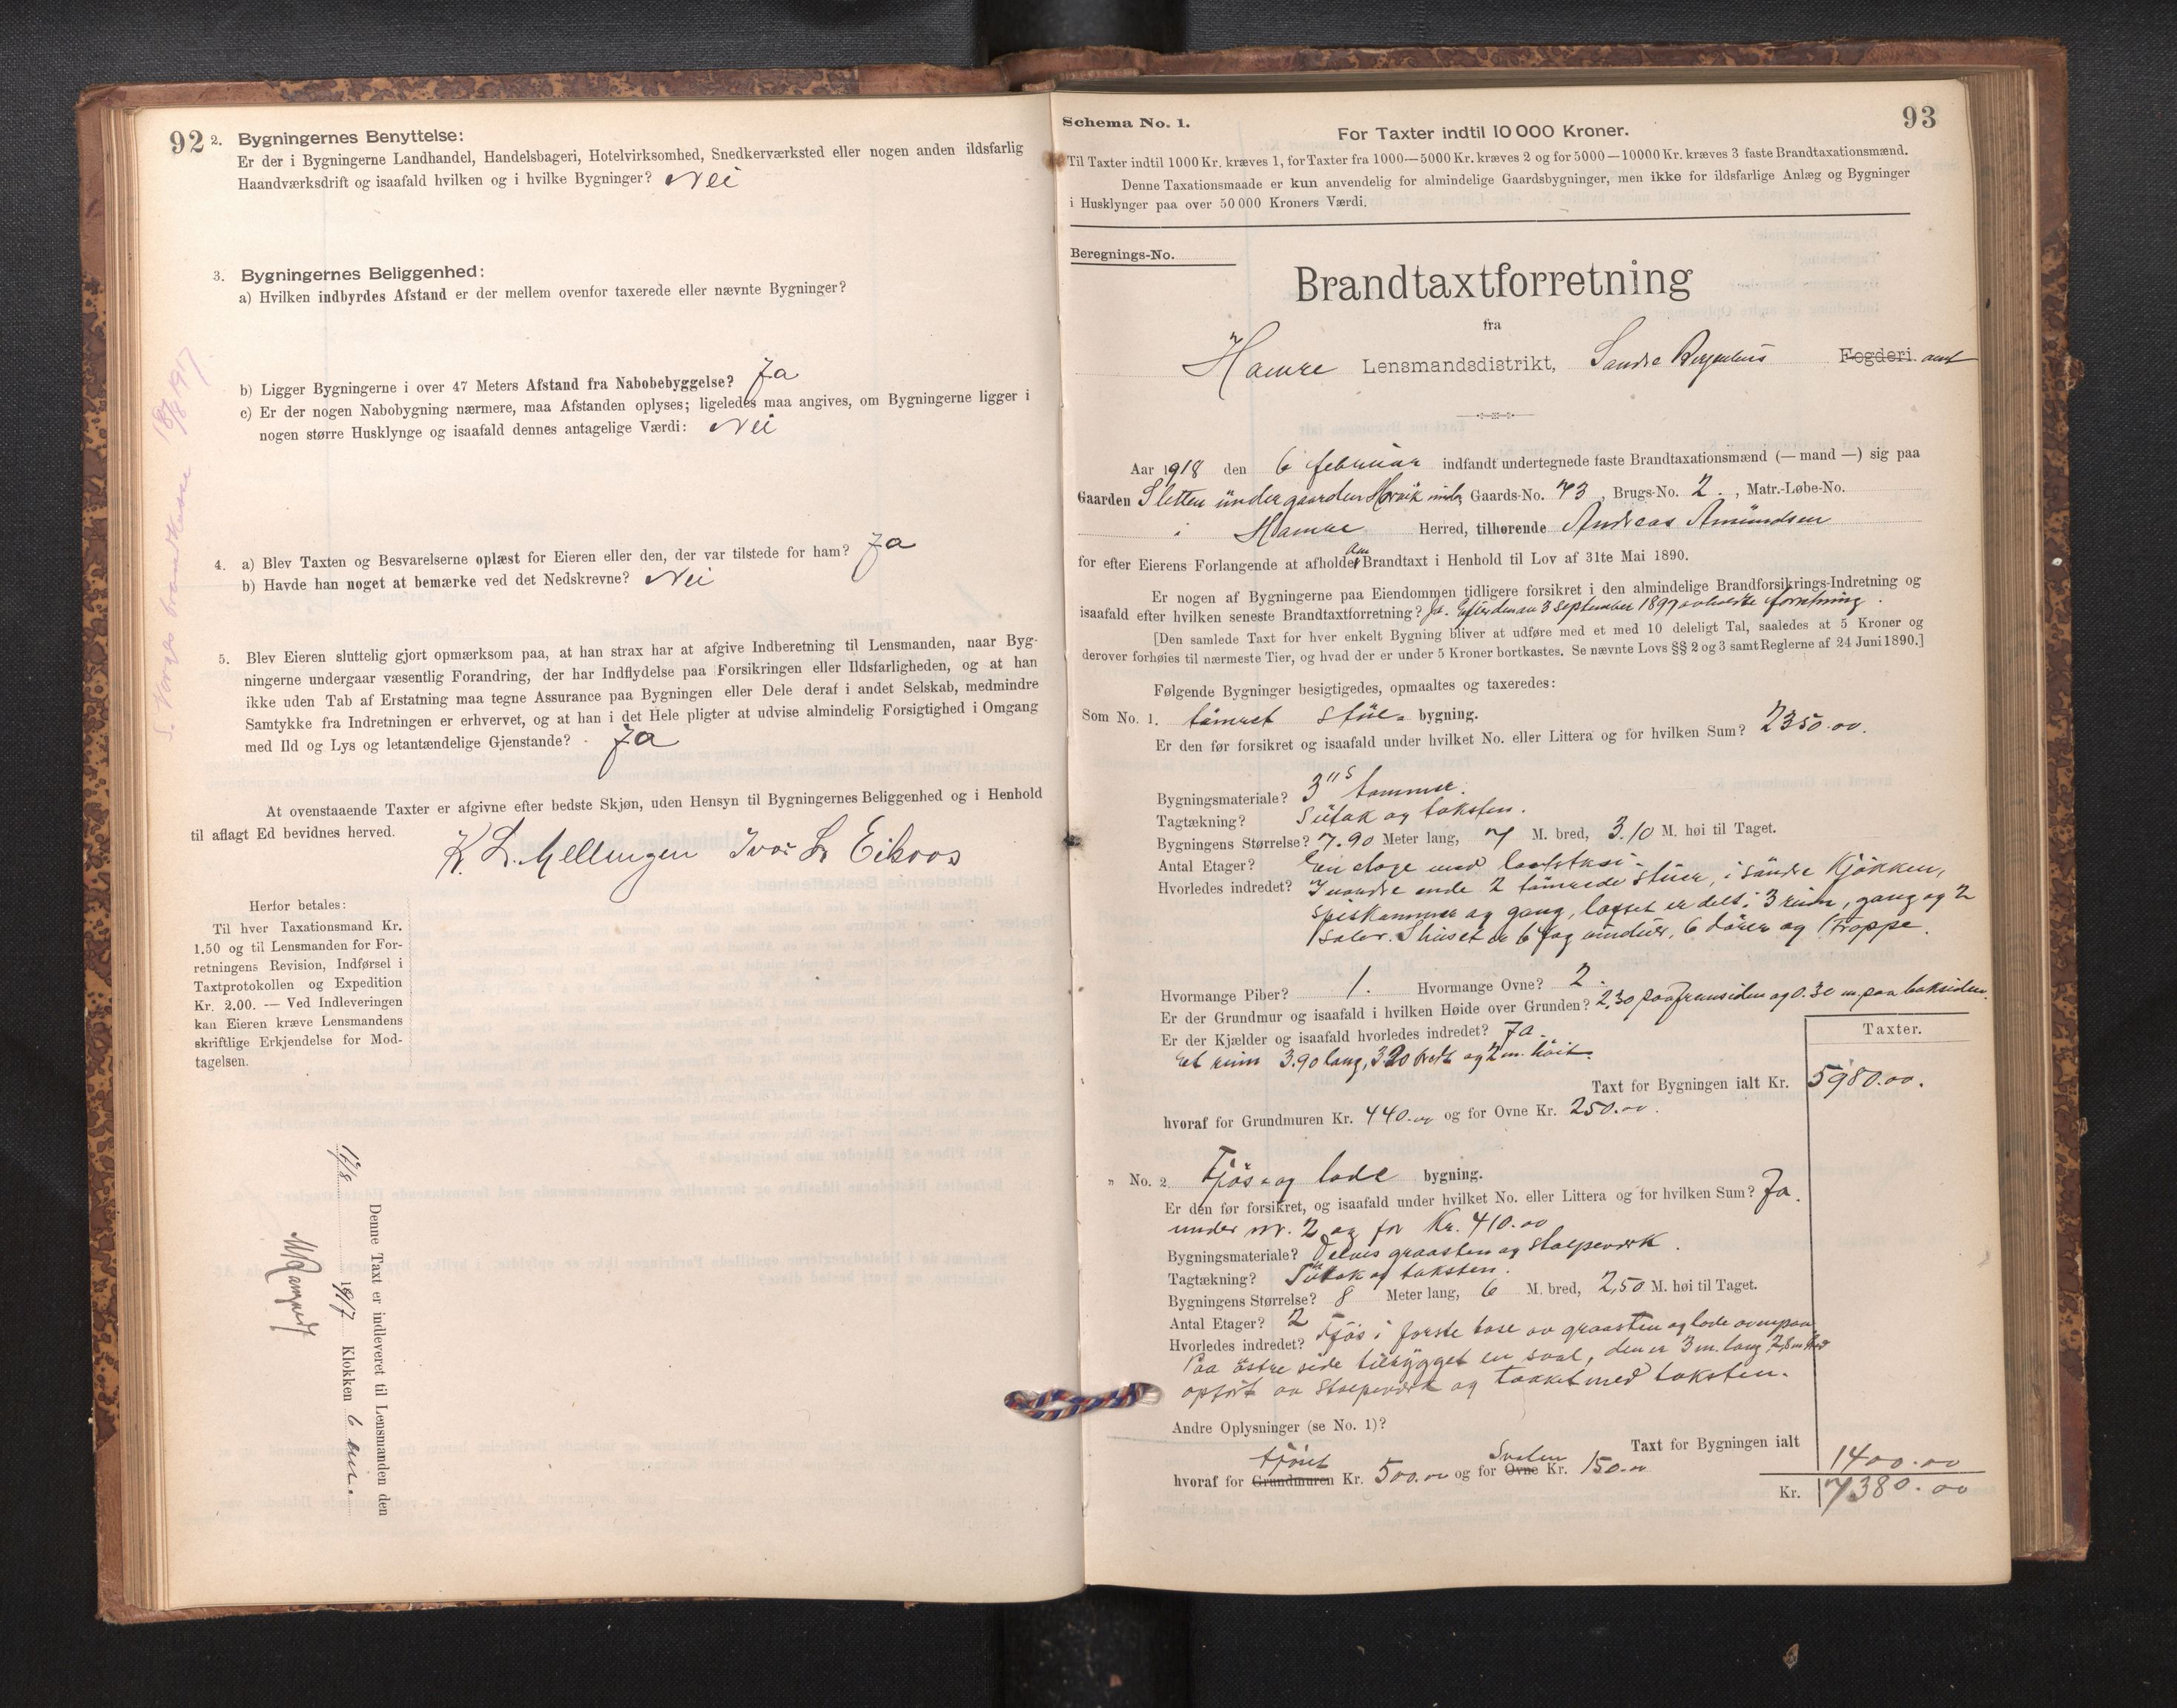 92
2. Bygningernes Benyttelse:
Er der i Bygningerne Landhandel, Handelsbageri, Hotelvirksomhed, Snedkerværksted eller nogen anden ildsfarlig
Haandværksdrift og isaafald hvilken og i hvilke Bygninger? Nei
3. Bygningernes Beliggenhed:
a) Hvilken indbyrdes Afstand er der mellem ovenfor taxerede eller nævnte Bygninger?
b) Ligger Bygningerne i over 47 Meters Afstand fra Nabobebyggelse? Ja
c) Er der nogen Nabobygning nærmere, maa Afstanden oplyses; ligeledes maa angives, om Bygningerne ligger i
nogen større Husklynge og isaafald dennes antagelige Værdi: Nei
4. a) Blev Taxten og Besvarelserne oplæst for Eieren eller den, der var tilstede for ham? Ja
b) Havde han noget at bemærke ved det Nedskrevne? Nei
5. Blev Eieren sluttelig gjort opmærksom paa, at han strax har at afgive Indberetning til Lensmanden, naar Byg-
ningerne undergaar væsentlig Forandring, der har Indflydelse paa Forsikringen eller Ildsfarligheden, og at han
ikke uden Tab af Erstatning maa tegne Assurance paa Bygningen eller Dele deraf i andet Selskab, medmindre
Samtykke fra Indretningen er erhvervet, og at han i det Hele pligter at udvise almindelig Forsigtighed i Omgang
med Ild og Lys og letantændelige Gjenstande? Ja
At ovenstaaende Taxter er afgivne efter bedste Skjøn, uden Hensyn til Bygningernes Beliggenhed og i Henhold
til aflagt Ed bevidnes herved.
K. L. Mellingen Ivar L. Eikaas
Herfor betales:
Til hver Taxationsmand Kr.
1.50 og til Lensmanden for For-
retningens Revision, Indførsel i
Taxtprotokollen og Expedition
Kr. 2.00. — Ved Indleveringen
kan Eieren kræve Lensmandens
skriftlige Erkjendelse for Mod-
tagelsen.
Denne Taxt er indleveret til Lensmanden den
1917 Klokken 6 em.
S. Norges brandkasse 1917
Schema No. 1.
93
For Taxter indtil 10 000 Kroner.
Til Taxter indtil 1000 Kr. kræves 1, for Taxter fra 1000—5000 Kr. kræves 2 og for 5000—10000 Kr. kræves 3 faste Brandtaxationsmænd.
Denne Taxationsmaade er kun anvendelig for almindelige Gaardsbygninger, men ikke for ildsfarlige Anlæg og Bygninger
i Husklynger paa over 50 000 Kroners Værdi.
Beregnings-No.
Brandtaxtforretning
fra
Hamre Lensmandsdistrikt, Søndre Bergenhus Fogderi amt
Aar 1918 den 6 februar indfandt undertegnede faste Brandtaxationsmænd (— mand —) sig paa
Gaarden Sletten under gaarden Horvik Gaards-No. 43, Brugs-No. 2., Matr.-Løbe-No.
i Hamre Herred, tilhørende Andreas Amundsen
for efter Eierens Forlangende at afholde Om Brandtaxt i Henhold til Lov af 31te Mai 1890.
Er nogen af Bygningerne paa Eiendommen tidligere forsikret i den almindelige Brandforsikrings-Indretning og
isaafald efter hvilken seneste Brandtaxtforretning? Ja. Efter den an 3 september 1897 avholdte forretning.
[Den samlede Taxt for hver enkelt Bygning bliver at udføre med et med 10 deleligt Tal, saaledes at 5 Kroner og
derover forhøies til nærmeste Tier, og hvad der er under 5 Kroner bortkastes. Se nævnte Lovs §§ 2 og 3 samt Reglerne af 24 Juni 1890.]
Følgende Bygninger besigtigedes, opmaaltes og taxeredes:
Som No. 1. tømret stue bygning.
Er den før forsikret og isaafald under hvilket No. eller Littera og for hvilken Sum? 2350.00.
Bygningsmateriale? 3"s tømmer.
Tagtækning? Sutak og taksten.
Bygningens Størrelse? 7.90 Meter lang, 7 M. bred, 3.10 M. høi til Taget.
Antal Etager? En etage med loftstasi.
Hvorledes indredet? I nordre ende 2 tømrede stuer, i søndre Kjøkken,
Spiskammer og gang, loftet er delt i 3 rum, gang og 2
saler. I huset er 6 fag vinduer, 6 dører og 1 Trappe.
Hvormange Piber? 1. Hvormange Ovne? 2.
Er der Grundmur og isaafald i hvilken Høide over Grunden? 2.30 paa fremsiden og 0.30 m. paa baksiden.
Er der Kjælder og isaafald hvorledes indredet? Ja.
Et rum 3.90 lang, 3.20 bredt og 2 m. høit.
Taxter.
Taxt for Bygningen ialt Kr. 5980.00.
hvoraf for Grundmuren Kr. 440.00 og for Ovne Kr. 250.00.
" No. 2. Fjøs og lade bygning.
Er den før forsikret, og isaafald under hvilket No. eller Littera og for hvilken Sum? Ja.
under nr. 2 og for Kr. 410.00
Bygningsmateriale? Delvis graasten og stolpeverk.
Tagtækning? Sutak og taksten.
Bygningens Størrelse? 8 Meter lang, 6 M. bred, 2,50 M. høi til Taget.
Antal Etager? 2
Hvorledes indredet? Fjøs i første tase av graasten og lade ovenpaa
Paa østre side tilbygget en sval, den er 3 m. lang 2,8 m bred
opført av stolpeverk og tækket med taksten.
Andre Oplysninger (se No. 1)?
Taxt for Bygningen ialt 1400.00
hvoraf for Grundmuren fjøset Kr. 500.00 og for Ovne Svalen Kr. 150.00
Kr. 7380.00